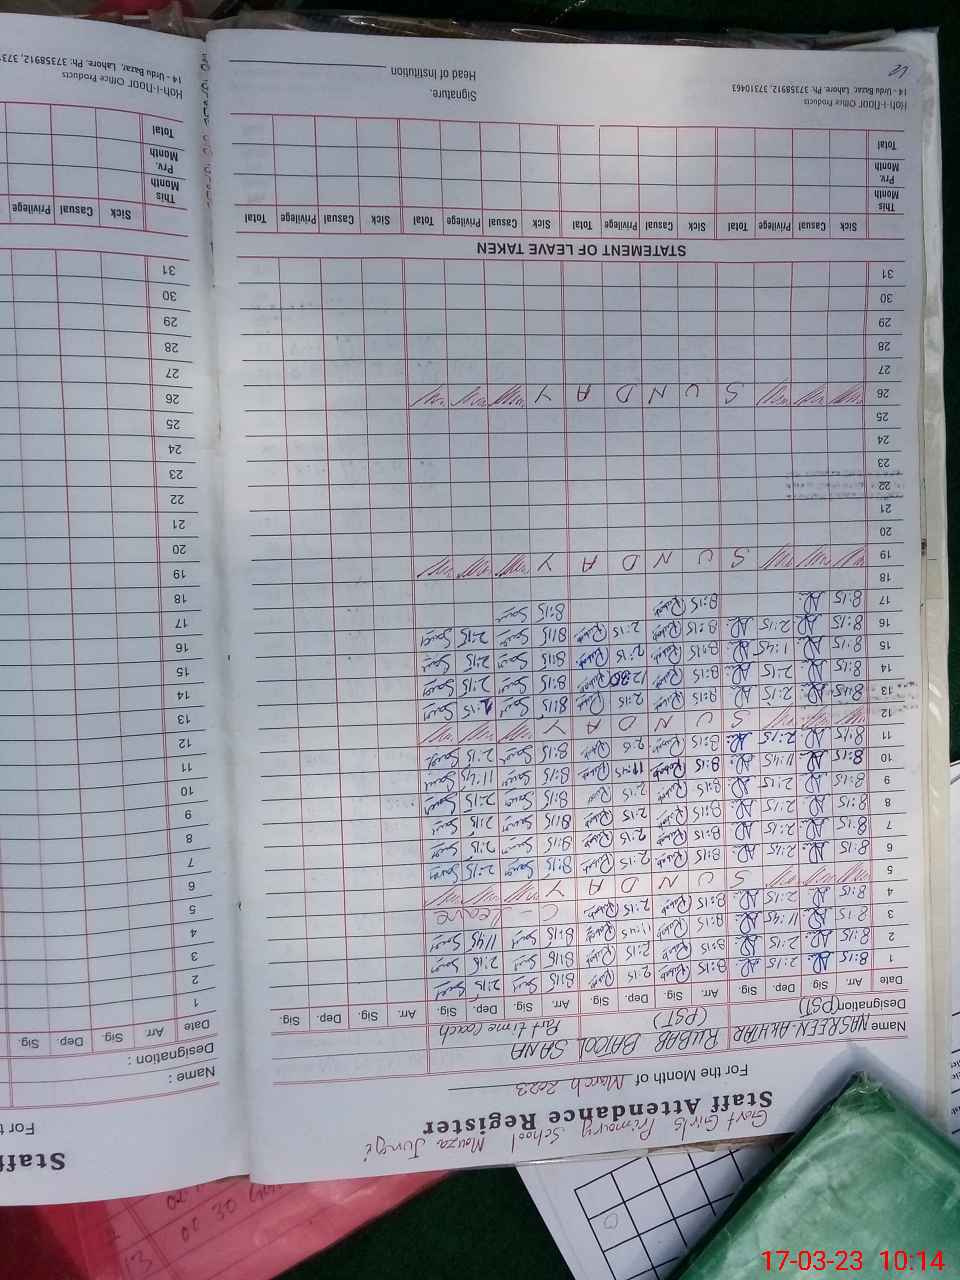 Govt Girls Primary School Mouza Jungi
Staff Attendance Register
For the Month of March 2023
Name NASREEN AKHTAR RUBAB BATOOL SANA
Designation (PST) (PST) Part time Coach
Date Arr. Sig. Dep. Sig. Arr. Sig. Dep. Sig. Arr. Sig. Dep. Sig. Arr. Sig. Dep. Sig.
1 8:15 2:15 8:15 Rubab 2:15 8:15 Sana 2:15 Sana
2 8:15 2:15 8:15 Rubab 2:15 Rubab 8:15 Sana 2:15 Sana
3 8:15 11:45 8:15 Rubab 11:45 Rubab 8:15 Sana 11:45 Sana
4 8:15 2:15 8:15 Rubab 2:15 Rubab C - Leave
5 S U N D A Y
6 8:15 2:15 8:15 Rubab 2:15 Rubab 8:15 Sana 2:15 Sana
7 8:15 2:15 8:15 Rubab 2:15 Rubab 8:15 Sana 2:15 Sana
8 8:15 2:15 8:15 Rubab 2:15 Rubab 8:15 Sana 2:15 Sana
9 8:15 2:15 8:15 Rubab 2:15 8:15 Sana 2:15 Sana
10 8:15 11:45 8:15 Rubab 11:45 Rubab 8:15 Sana 11:45 Sana
11 8:15 2:15 8:15 Rubab 2:15 Rubab 8:15 Sana 2:15 Sana
12 S U N D A Y
13 8:15 2:15 8:15 Rubab 2:15 Rubab 8:15 Sana 2:15 Sana
14 8:15 2:15 8:15 Rubab 12:30 Rubab 8:15 Sana 2:15 Sana
15 8:15 1:45 8:15 Rubab 2:15 Rubab 8:15 Sana 2:15 Sana
16 8:15 2:15 8:15 Rubab 2:15 Rubab 8:15 Sana 2:15 Sana
17 8:15 8:15 Rubab 8:15 Sana
18
19 S U N D A Y
20
21
22
23
24
25
26 S U N D A Y
27
28
29
30
31
STATEMENT OF LEAVE TAKEN
Sick Casual Privilege Total Sick Casual Privilege Total Sick Casual Privilege Total Sick Casual Privilege Total
This Month
Prv. Month
Total
Koh-i-Noor Office Products
14 - Urdu Bazar, Lahore. Ph: 37358912, 37310463
Signature.
Head of Institution
Staff
For t
Name :
Designation :
Date Arr. Sig. Dep. Sig.
1
2
3
4
5
6
7
8
9
10
11
12
13
14
15
16
17
18
19
20
21
22
23
24
25
26
27
28
29
30
31
Sick Casual Privilege
This Month
Prv. Month
Total
Koh-i-Noor Office Products
14 - Urdu Bazar, Lahore. Ph: 37358912, 373
17-03-23 10:14